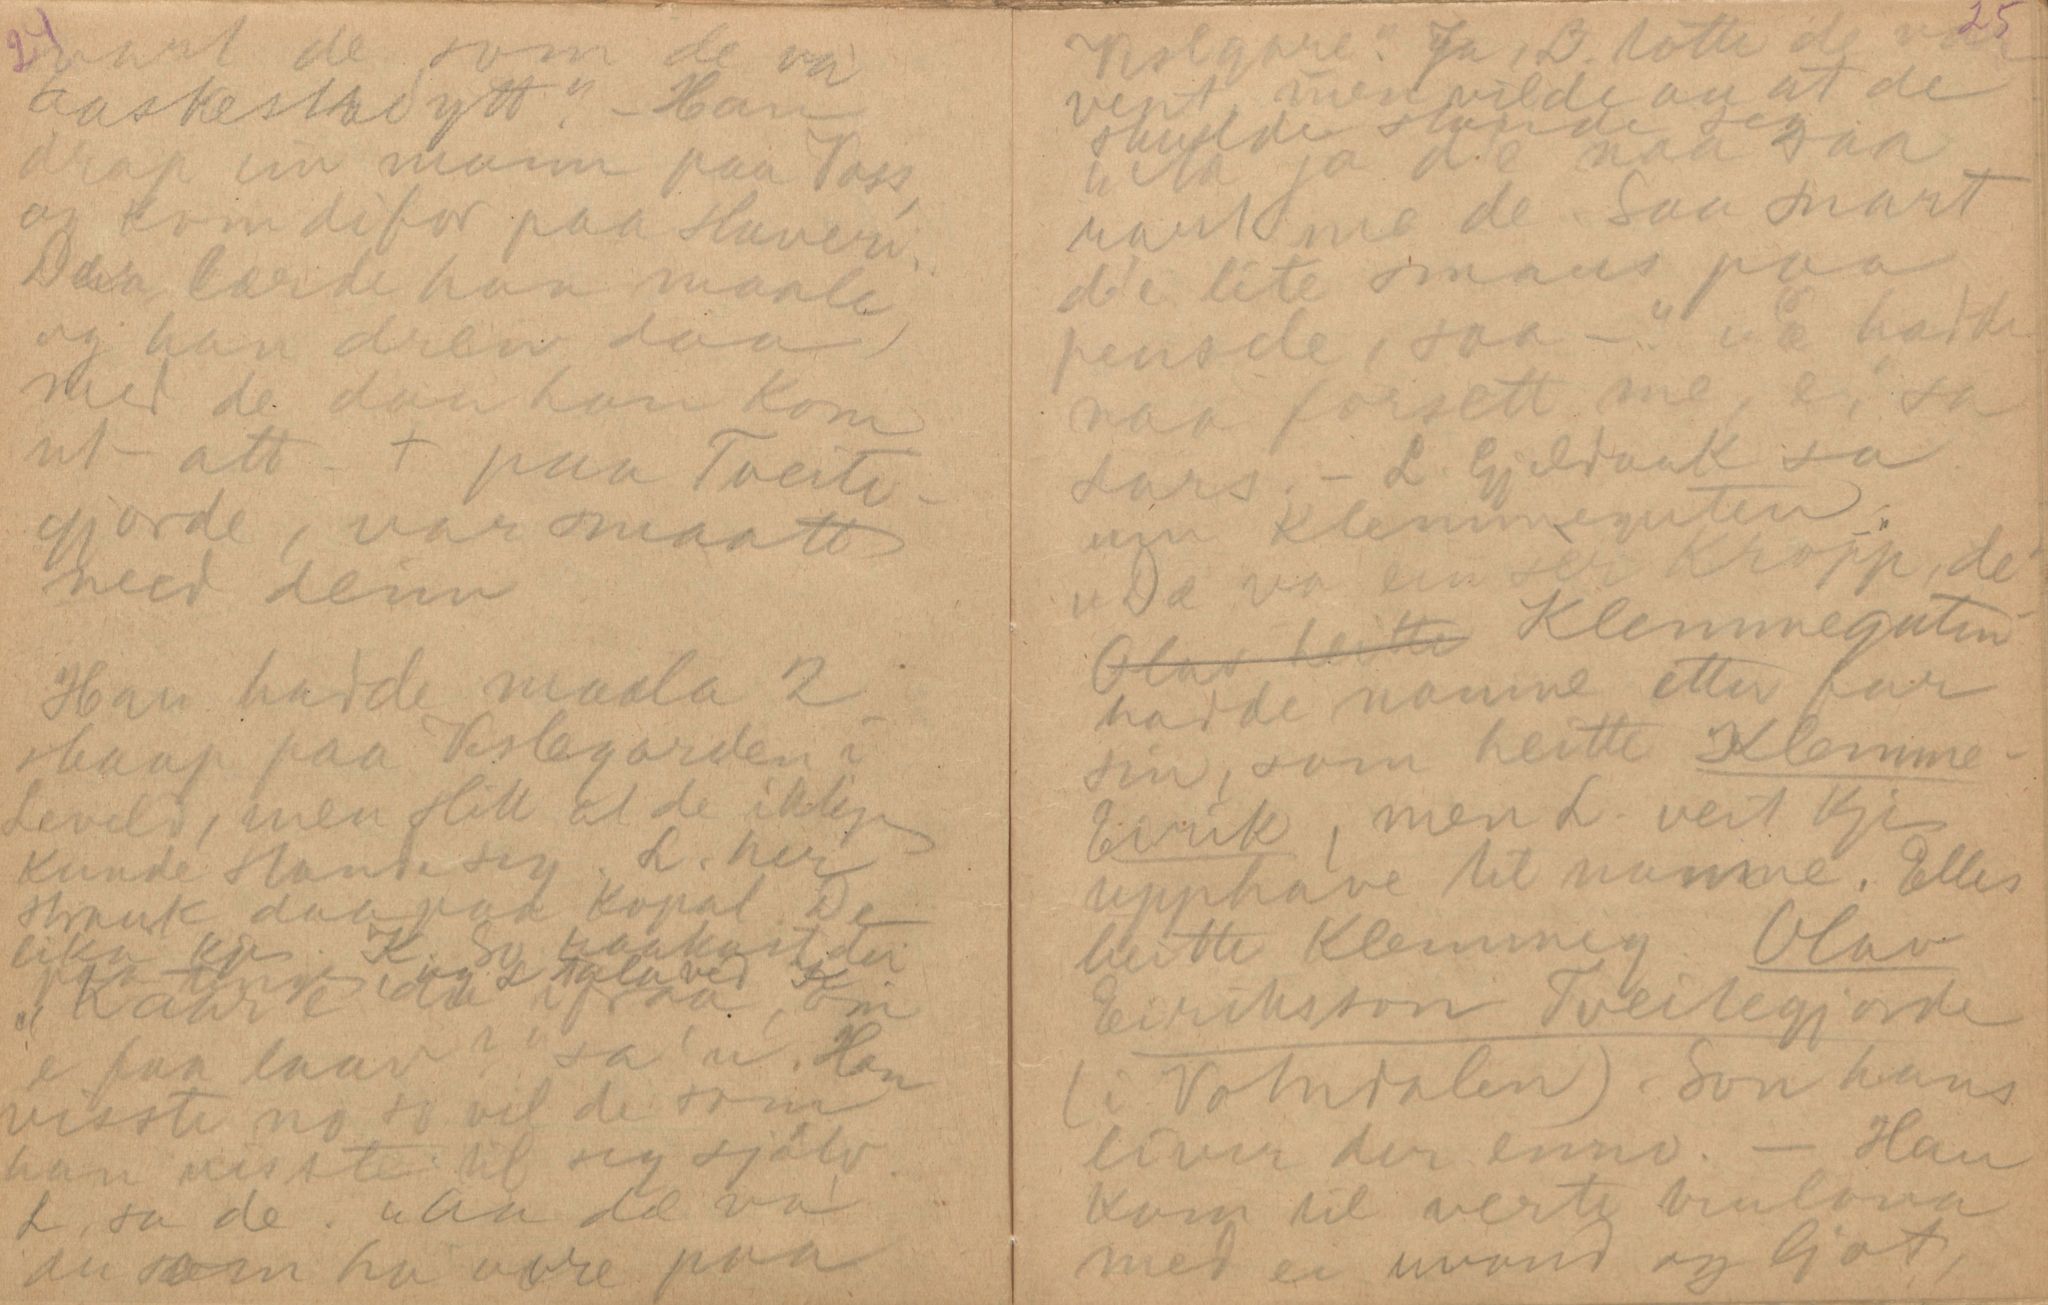 24
vart de som de va
aaskesladytt." – Han
drap ein mann paa Voss,
og kom difor paa slaveri.
Der lærde han maala
og han dreiv daa
med de daa han kom
ut att – + paa Tveite-
gjorde, var smaatt
med deim
Han hadde maala 2
skaap paa Vislegarden i
Leveld, men slikt at de ikkje
kunde standa seg. L. her
strauk daa paa Kopal. De
lika kje K. So raakast dei
paa tings, og L tala ved K
"Kaar e du ifraa, om
e faa laav?" sa 'n. Han
visste no so vel de som
han visste til seg sjølv.
L. sa de. "Aa dæ va
du som ha vore paa
25
Vislgare." Ja, L. totte de var
vent, men vilde au at de
skulde standa seg
"Aa ja d'e naa saa
rart me de. Saa snart
d'e lite smaus paa
pensle, saa –" "Æ hadde
naa forsett me, e," sa
Lars. – L. Gjeldaak sa
um Klemmeguten:
"Dæ va ein ser Kropp, de"
Olav heitte Klemmeguten
hadde namne etter far
sin, som heitte Klemme-
Eirik, men L. veit kje
upphave til namne. Elles
heitte Klemmeg. Olav
Eiriksson Tveitegjorde
(i Votndalen). Son hans
liver der enno. – Han
kom til verte trulova
med ei uvand og ljot,